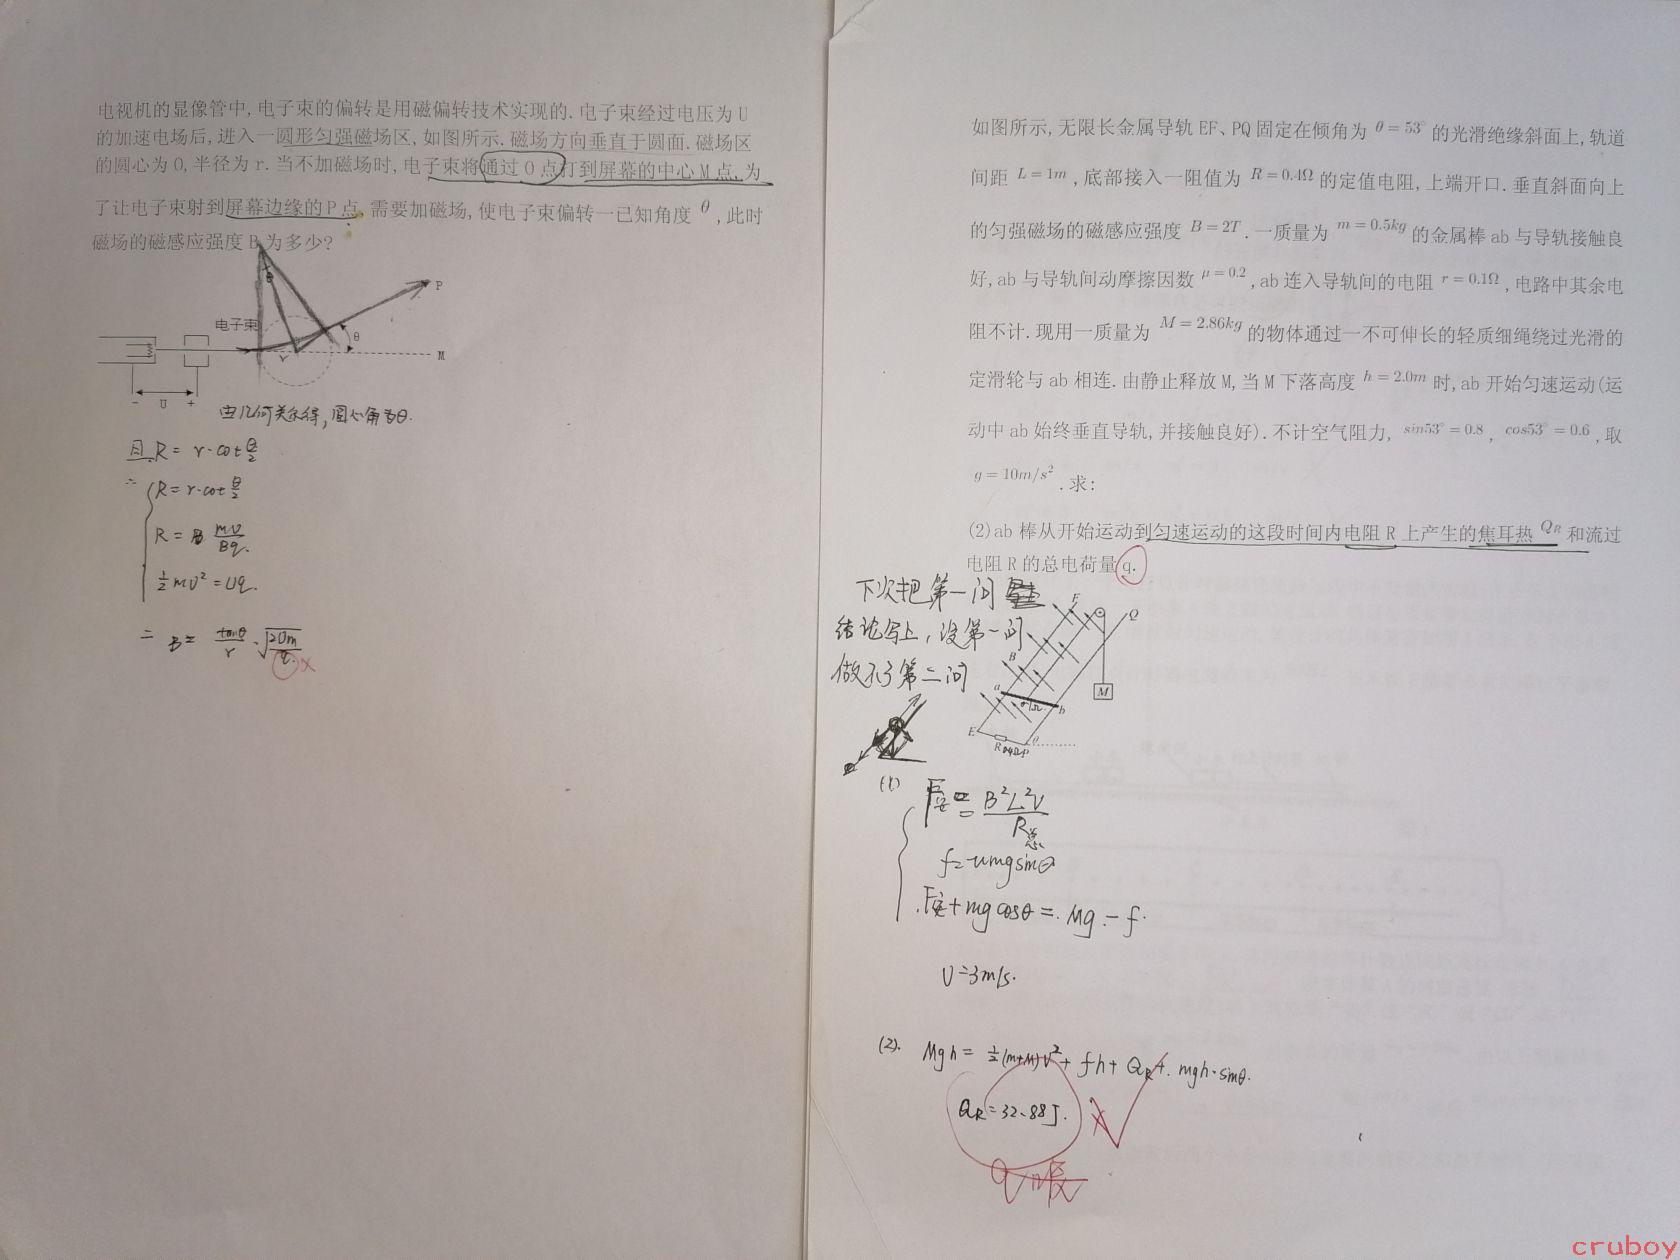 电视机的显像管中,电子束的偏转是用磁偏转技术实现的.电子束经过电压为U
的加速电场后,进入一圆形匀强磁场区,如图所示.磁场方向垂直于圆面.磁场区
的圆心为O,半径为r.当不加磁场时,电子束将通过O点打到屏幕的中心M点.为
了让电子束射到屏幕边缘的P点,需要加磁场,使电子束偏转一已知角度θ,此时
磁场的磁感应强度B为多少?
θ
P
电子束
θ
M
r
- U +
由几何关系得,圆心角为θ.
且R=r·cot θ/2
∴ R=r·cot θ/2
R= mv/Bq.
½mv²=Uq.
B= tanθ/r √(2Um/q)
×
如图所示,无限长金属导轨EF、PQ固定在倾角为θ=53°的光滑绝缘斜面上,轨道
间距L=1m,底部接入一阻值为R=0.4Ω的定值电阻,上端开口.垂直斜面向上
的匀强磁场的磁感应强度B=2T.一质量为m=0.5kg的金属棒ab与导轨接触良
好,ab与导轨间动摩擦因数μ=0.2,ab连入导轨间的电阻r=0.1Ω,电路中其余电
阻不计.现用一质量为M=2.86kg的物体通过一不可伸长的轻质细绳绕过光滑的
定滑轮与ab相连.由静止释放M,当M下落高度h=2.0m时,ab开始匀速运动(运
动中ab始终垂直导轨,并接触良好).不计空气阻力,sin53°=0.8,cos53°=0.6,取
g=10m/s².求:
(2)ab棒从开始运动到匀速运动的这段时间内电阻R上产生的焦耳热Q_R和流过
电阻R的总电荷量q.
下次把第一问
结论写上,没第一问
做不了第二问
F
Q
B
M
a
0.1Ω
b
E
R 0.4Ω P
θ
(1)
F安= B²L²v/R总
f=umgsinθ
F安+mgcosθ=Mg-f.
v=3m/s.
(2). Mgh=½(m+M)v²+fh+Q_R+mgh·sinθ.
Q_R=32.88J.